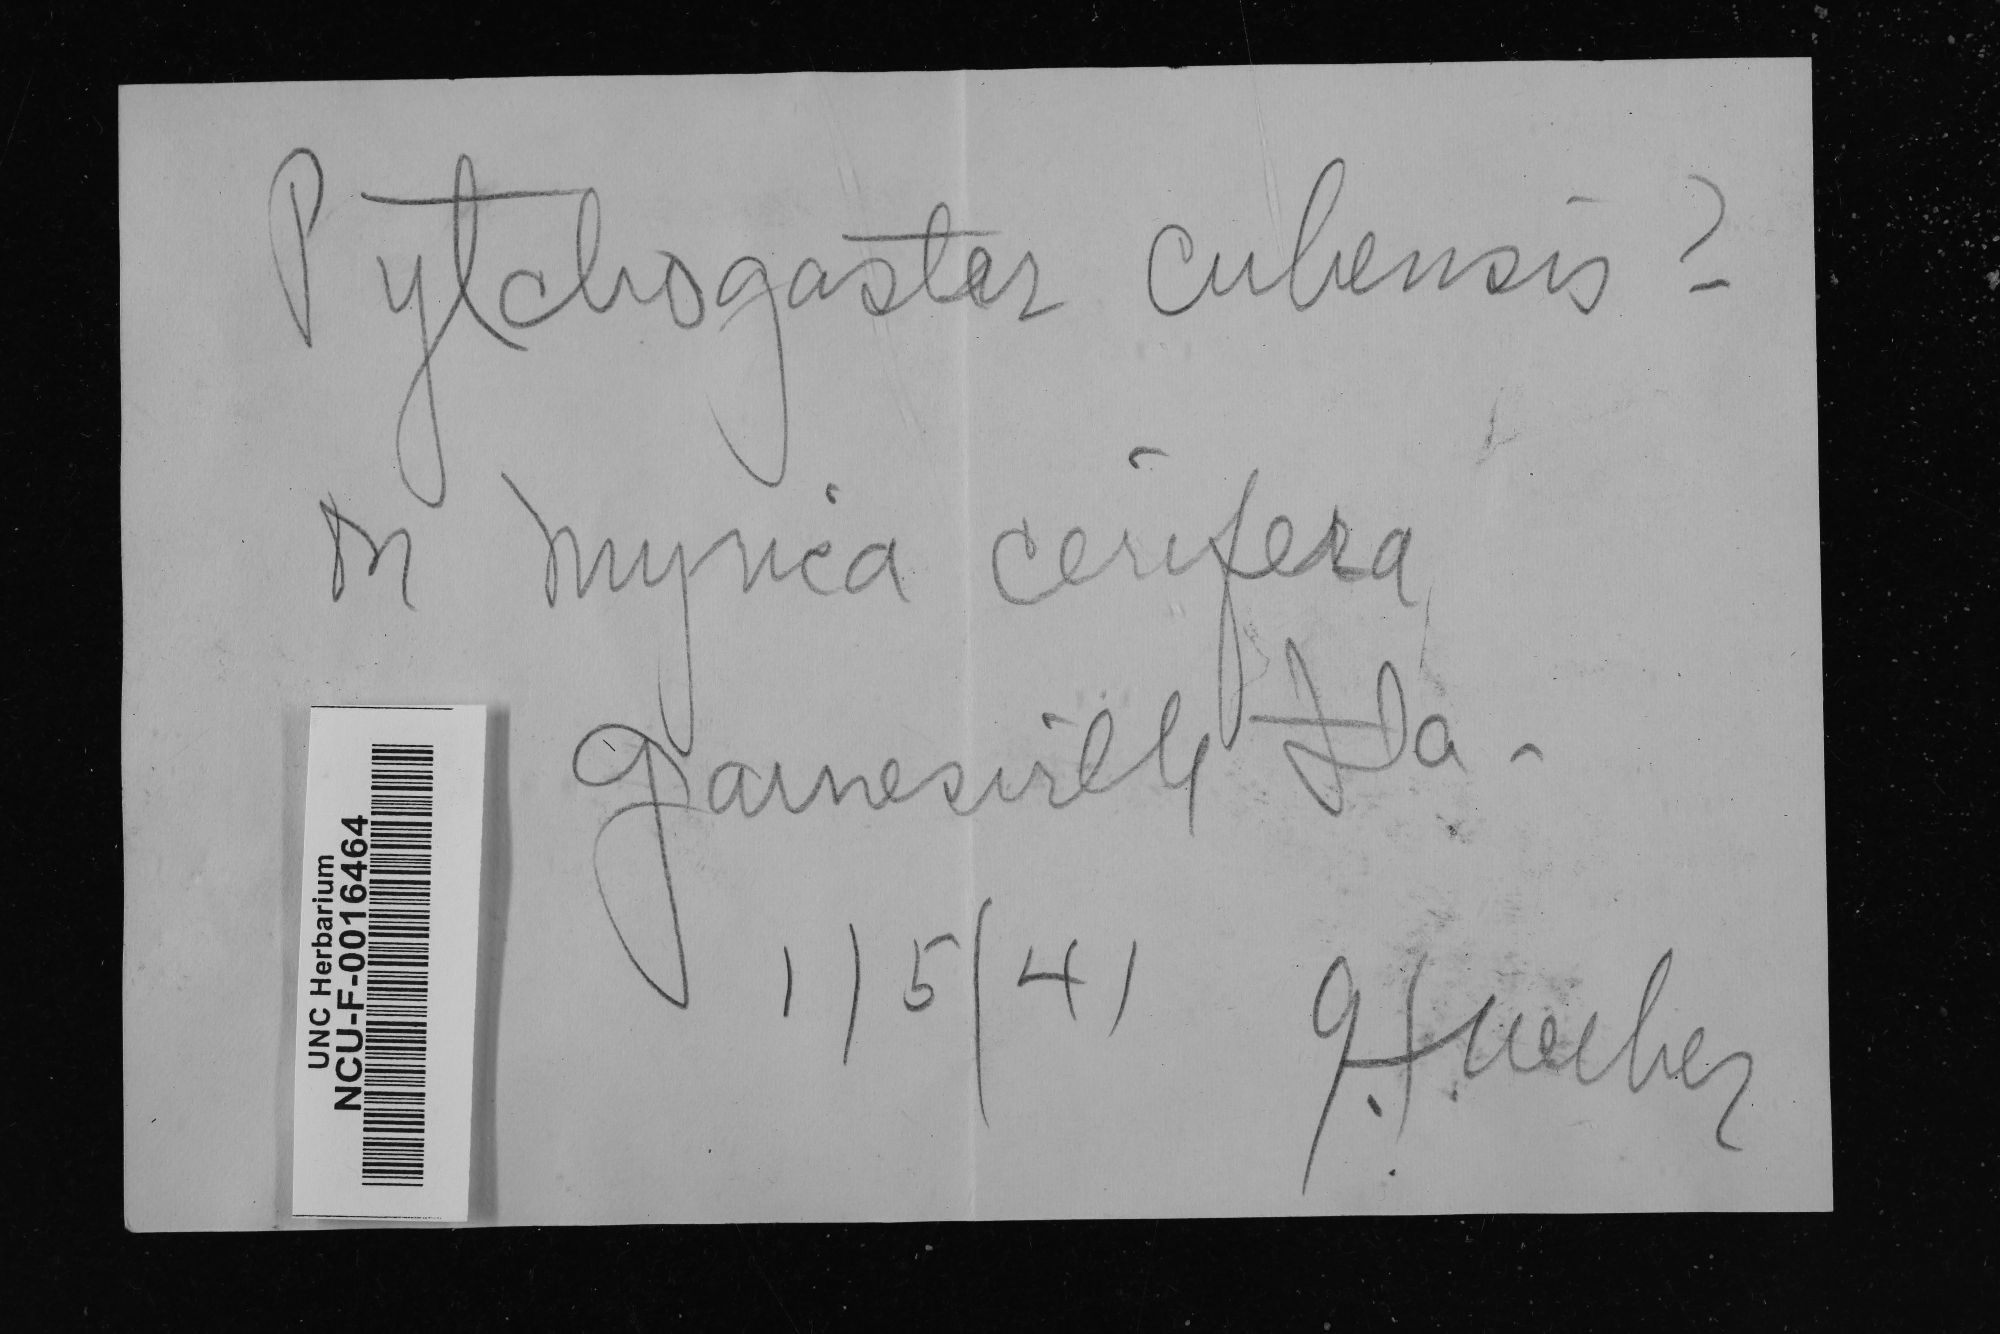 Pytchogaster cubensis?
on Myrica cerifera
Gainesville Fla.
1/5/41 G. F. Weber
UNC Herbarium
NCU-F-0016464